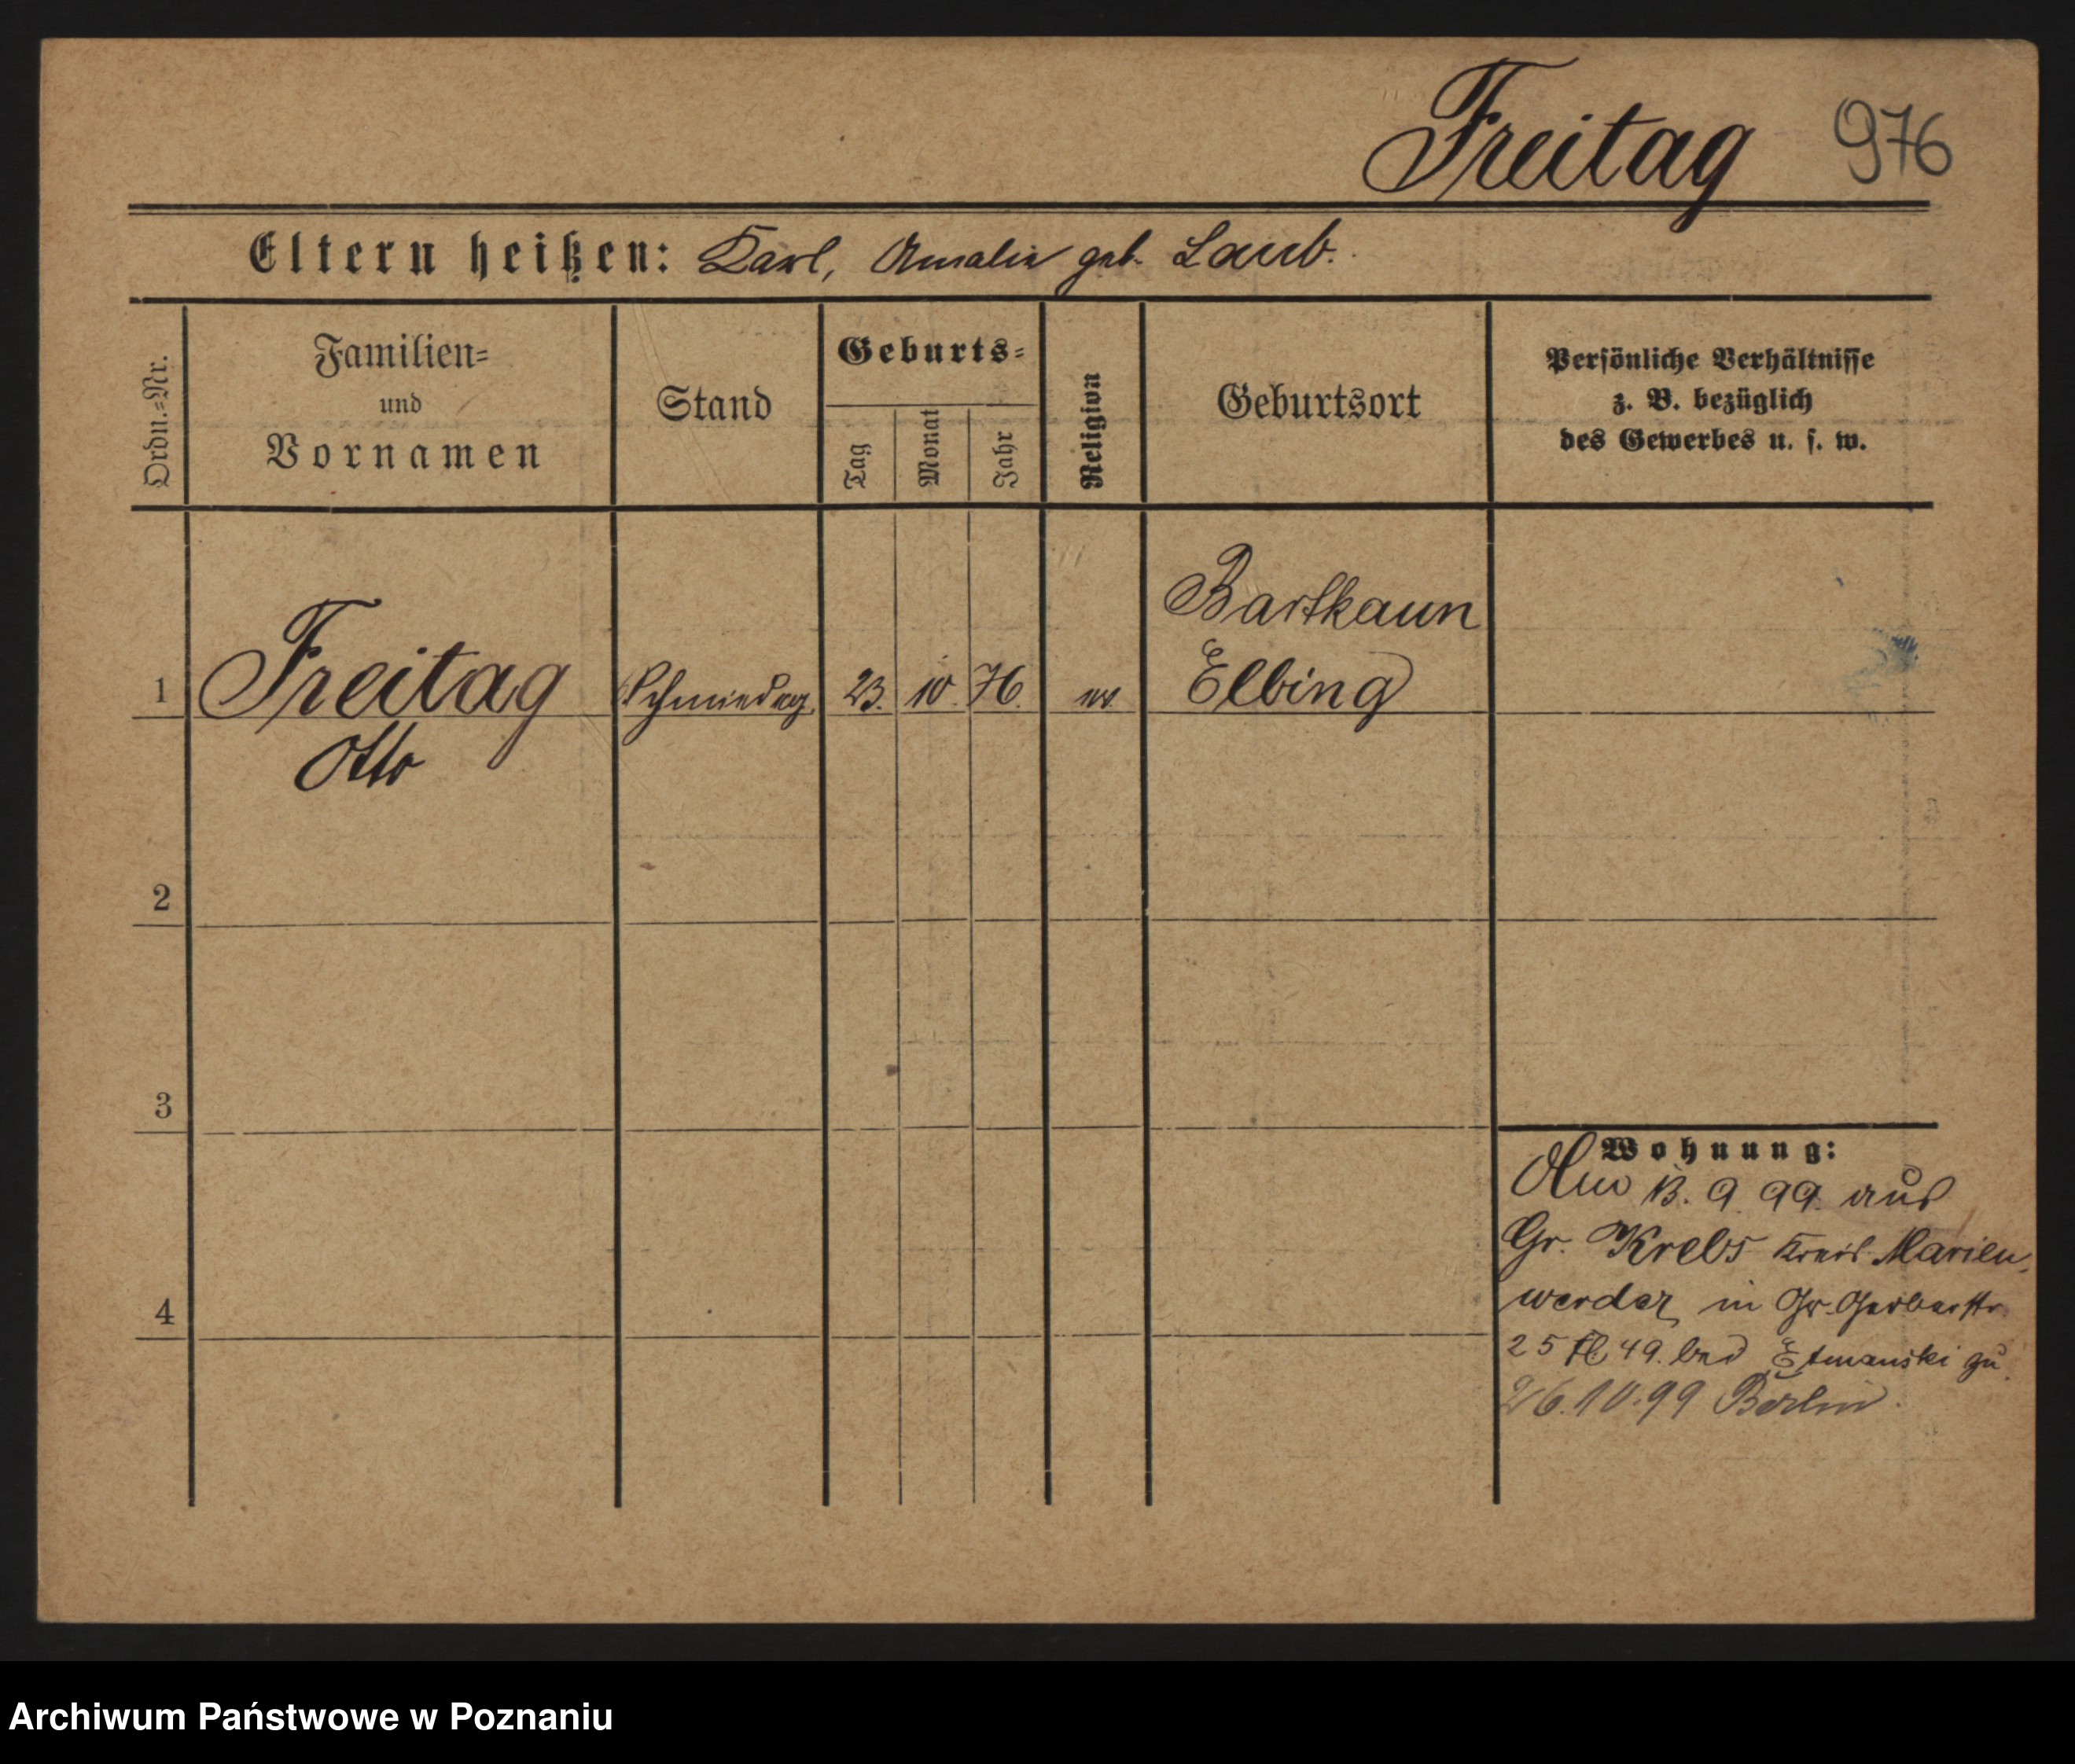 Freitag 976
Eltern heißen: Karl, Amalie geb. Laub.
Ordn.=Nr.
Familien=
und
Vornamen
Stand
Geburts=
Tag
Monat
Jahr
Religion
Geburtsort
Persönliche Verhältnisse
z. B. bezüglich
des Gewerbes u. s. w.
Bartkaun
1 Freitag Schmiedeg. 23. 10. 76. ev Elbing
Otto
2
3
4
Wohnung:
13. 9. 99. aus
Gr. Krebs Kreis Marien
werder in Gr. Gerberstr
25 49. bei Etmanski zu
26.10.99 Berlin.
Archiwum Państwowe w Poznaniu